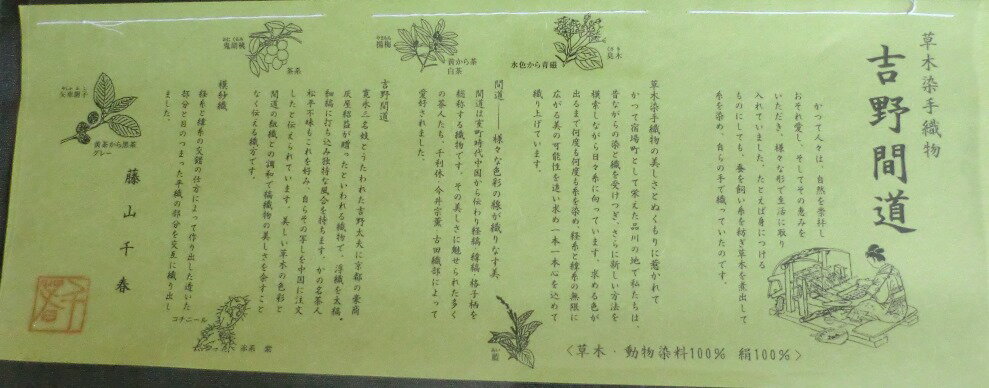 草木染手織物
吉野間道
かつて人々は、自然を崇拝し
おそれ愛し、そしてその恵みを
いただき、様々な形で生活に取り
入れていました。たとえば身につける
ものにしても、蚕を飼い糸を紡ぎ草木を煮出して
糸を染め、自らの手で織っていたのです。
草木染手織物の美しさとぬくもりに惹かれて
かつて宿場町として栄えた品川の地で私たちは、
昔ながらの染と織を受けつぎ、さらに新しい方法を
模索しながら日々糸に向っています。求める色が
出るまで何度も何度も糸を染め、経糸と緯糸の無限に
広がる美の可能性を追い求め一本一本心を込めて
織り上げています。
間道――様々な色彩の線が織りなす美、
間道は室町時代中国から伝わり経縞、緯縞、格子柄を
総称する織物です。その美しさに魅せられた多く
の茶人たち、千利休、今井宗薫、古田織部によって
愛好されました。
吉野間道
寛永三名妓とうたわれた吉野太夫に京都の豪商
灰屋紹益が贈ったといわれる織物で、浮織を太縞、
細縞に打ち込み独特な風合を持ちます。かの名茶人
松平不昧もこれを好み、自らその写しを中国に注文
したと伝えられています。美しい草木の色彩と
間道の紋織との調和で縞織物の美しさを余すこと
なく伝える織方です。
横紗織
経糸と緯糸の交錯の仕方によって作り出した透いた
部分と目のつまった平織の部分を交互に織り出し
ました。
藤山千春
くさぎ
臭木
水色から青磁
やまもも
楊梅
黄から茶
白茶
おにぐるみ
鬼胡桃
茶系
やしゃぶし
矢車附子
黄茶から黒茶
グレー
コチニール
赤系 紫
あい
藍
〈草木・動物染料100% 絹100%〉